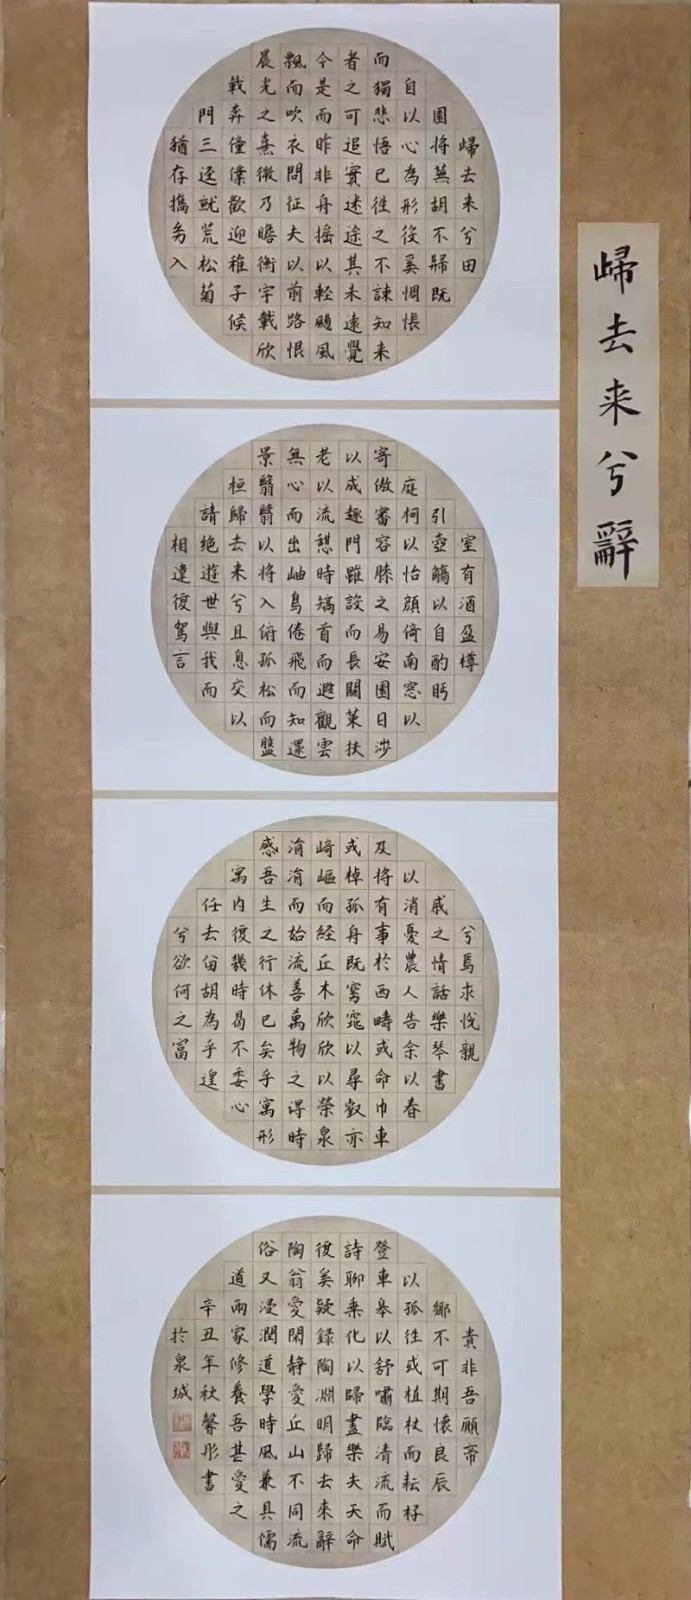 歸去来兮辭
歸去来兮田
園将蕪胡不歸既
自以心為形役奚惆悵
而獨悲悟已往之不諫知来
者之可追實迷途其未遠覺
今是而昨非舟摇以輕颺風
飄而吹衣問征夫以前路恨
晨光之熹微乃瞻衡宇載欣
載奔僮僕歡迎稚子候
門三逕就荒松菊
猶存攜幼入
室有酒盈樽
引壺觴以自酌眄
庭柯以怡顔倚南窓以
寄傲審容膝之易安園日涉
以成趣門雖設而長關策扶
老以流憩時矯首而遐觀雲
無心而出岫鳥倦飛而知還
景翳翳以将入俯孤松而盤
桓歸去来兮且息交以
請絶遊世與我而
相違復駕言
兮焉求悦親
戚之情話樂琴書
以消憂農人告余以春
及将有事於西疇或命巾車
或棹孤舟既窈窕以尋壑亦
崎嶇而經丘木欣欣以榮泉
涓涓而始流善萬物之得時
感吾生之行休已矣乎寓形
寓内復幾時曷不委心
任去留胡為乎遑
兮欲何之富
貴非吾願帝
鄉不可期懷良辰
以孤往或植杖而耘耔
登車皋以舒嘯臨清流而賦
詩聊乗化以歸盡樂夫天命
復奚疑錄陶淵明歸去来辭
陶翁愛閑静愛丘山不同流
俗又浸潤道學時風兼具儒
道兩家修養吾甚愛之
辛丑年秋馨彤書
於泉城